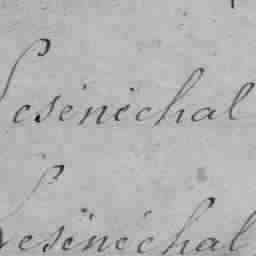 Lesénéchal
Lesénéchal